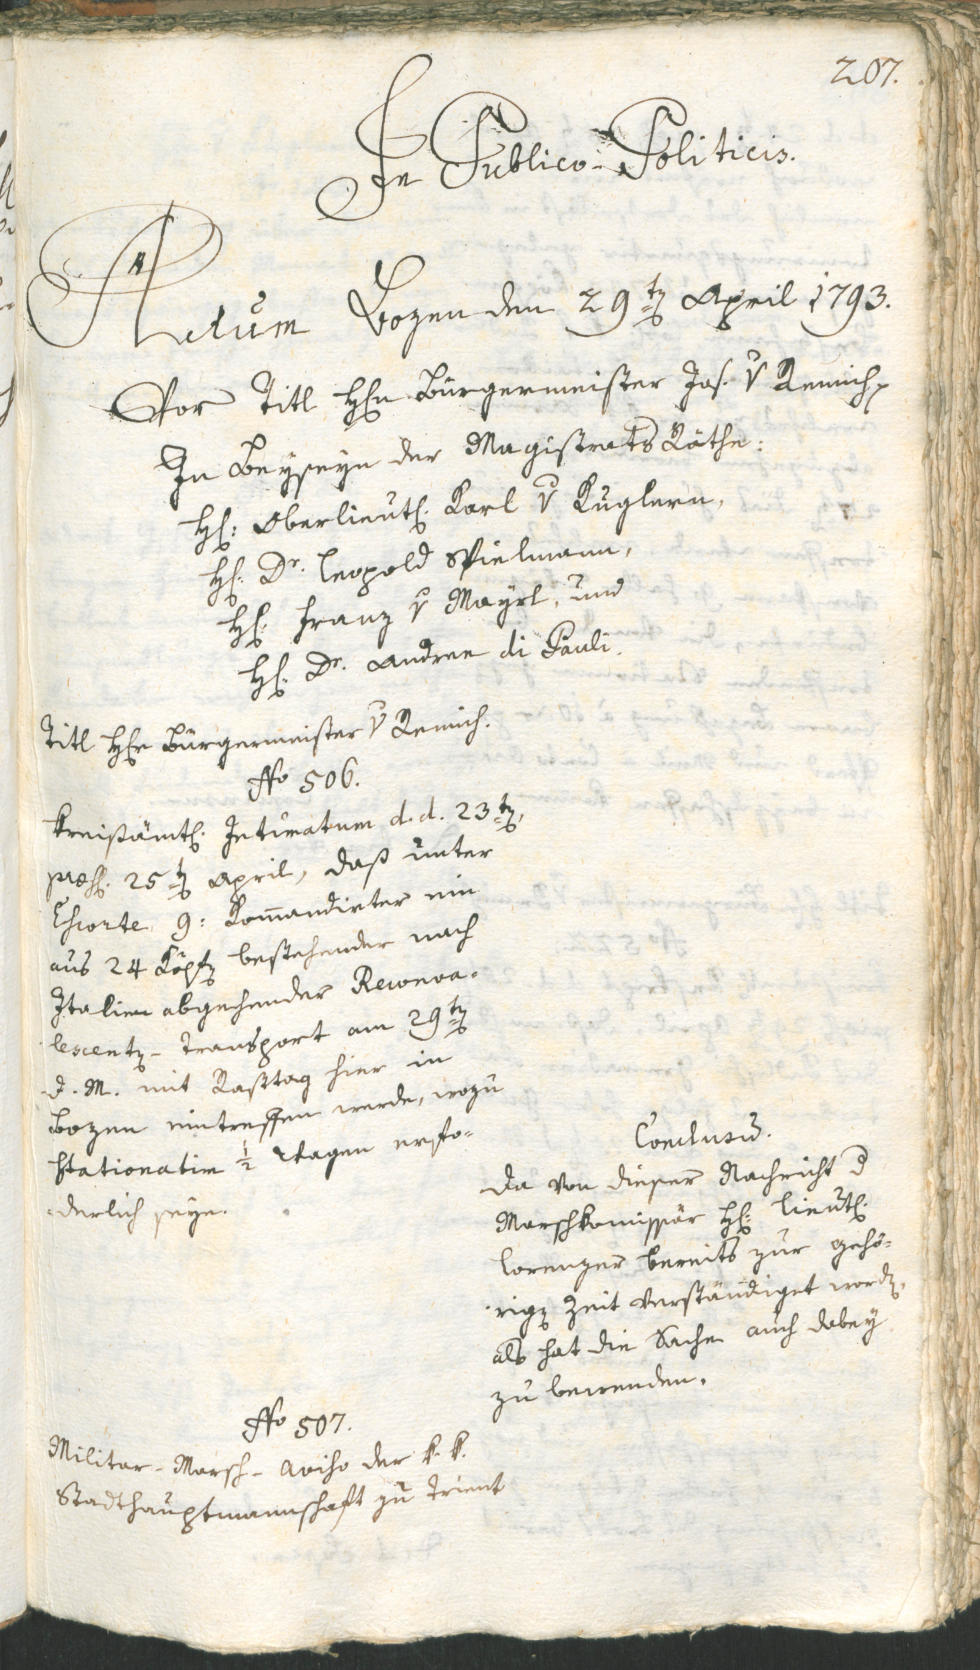 207.
In Publico-Politicis.
Actum Bozen den 29ten April 1793.
Vor Titl Hfn Bürgermeister Jos. v Remich,
In Beyseyn der Magistrats Räthe:
H: Oberlieut. Karl v Kuglern,
H: Dr. Leopold Spielmann,
H: Franz v Mayrl, und
H: Dr. Andree di Pauli.
Titl Hfr Bürgermeister v Remich.
No 506.
Kreisämtl. Intimatum d. d. 23ten,
præs. 25ten April, daß unter
Escorte 9: Komandirter ein
aus 24 Köpfen bestehender nach
Italien abgehender Reconva-
lescenten-Transport am 29ten
d. M. mit Rasttag hier in
Bozen eintreffen werde, wozu
stationatim 1/2 Wagen erfo-
derlich seye.
Conclusū.
Da von dieser Nachricht d
Marschkomissär H: Lieut.
Lorenzer bereits zur gehö-
rigen Zeit verständiget worden,
als hat die Sache auch dabey
zu bewenden.
No 507.
Militar-Marsch-Aviso der k. k.
Stadthauptmannschaft zu Trient